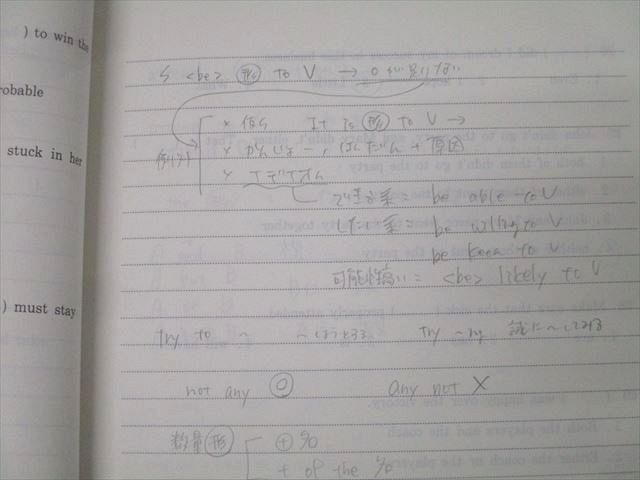 ) to win the
robable
stuck in her
) must stay
S <be> 形 to V → Oが足りない
例外
× 仮S It is 形 to V →
× かんじょー, はんだん + 原因
× イディオム
できる系 = be able to V
したい系 = be willing to V
be keen to V
可能性高い = <be> likely to V
try to ~ ~しようとする try ~ing 試しに~してみる
not any ○ any not ×
数量形
+ %
+ of the %